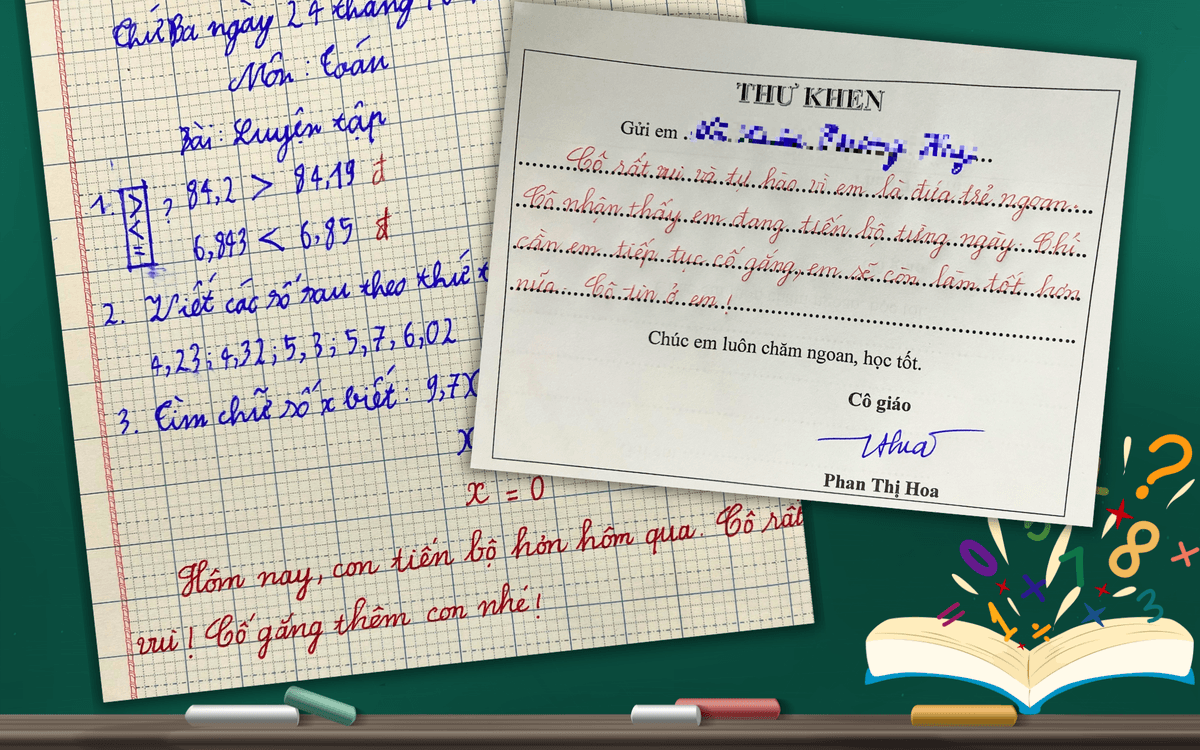 Thứ Ba ngày 24 tháng
Môn : Toán
Bài : Luyện tập
1. > < = ? 84,2 > 84,19 đ
6,843 < 6,85 đ
2. Viết các số sau theo thứ t
4,23; 4,32; 5,3; 5,7; 6,02
3. Tìm chữ số x biết: 9,7x
x
x = 0
Hôm nay, con tiến bộ hơn hôm qua. Cô rất
vui! Cố gắng thêm con nhé!
THƯ KHEN
Gửi em
Cô rất vui và tự hào vì em là đứa trẻ ngoan.
Cô nhận thấy em đang tiến bộ từng ngày. Chỉ
cần em tiếp tục cố gắng, em sẽ còn làm tốt hơn
nữa. Cô tin ở em!
Chúc em luôn chăm ngoan, học tốt.
Cô giáo
Hoa
Phan Thị Hoa